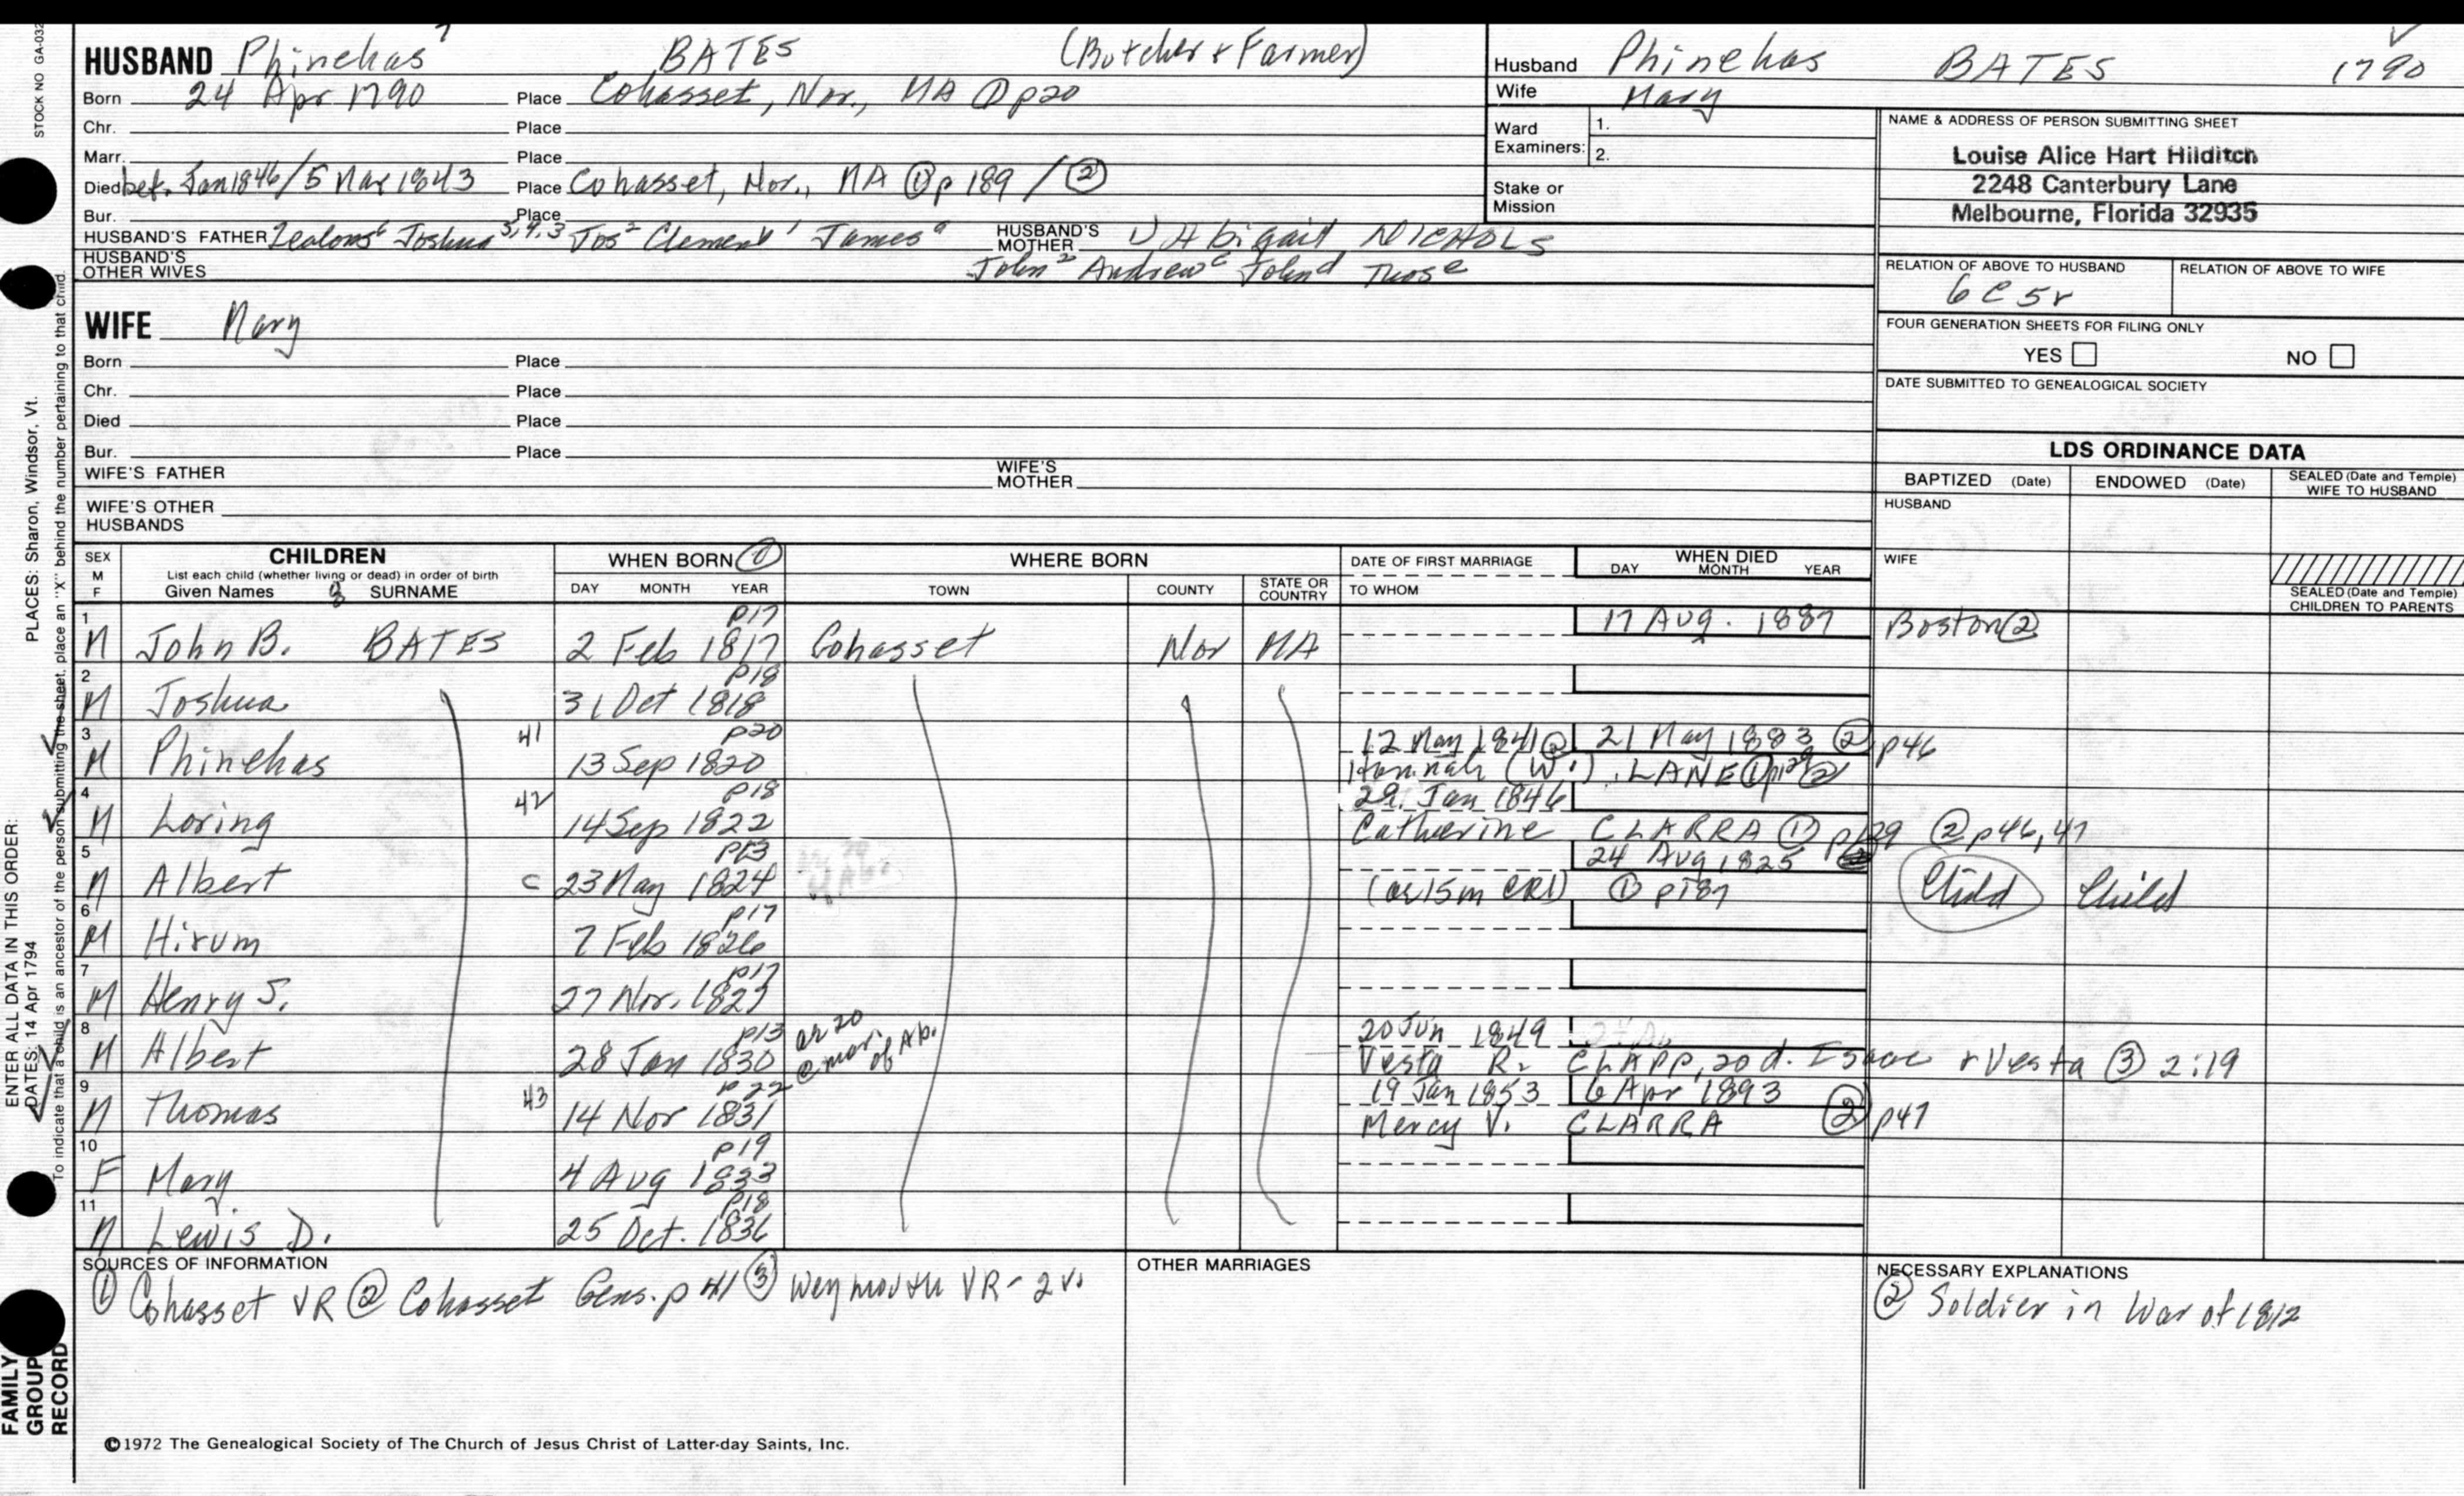 STOCK NO GA-032
HUSBAND Phinehas 7 BATES (Butcher & Farmer)
Born 24 Apr 1790 Place Cohasset, Nor., MA ① p20
Chr. Place
Marr. Place
Died bef. Jan 1846/5 Mar 1843 Place Cohasset, Nor., MA ① p 189 / ②
Bur. Place
HUSBAND'S FATHER Zealous 6 Joshua 5,4,3 Jos 2 Clement 1 James a HUSBAND'S MOTHER 1) Abigail NICHOLS
HUSBAND'S OTHER WIVES John Andrew c John d Thos e
Husband Phinehas BATES 1790
Wife Mary
Ward Examiners: 1.
2.
Stake or Mission
NAME & ADDRESS OF PERSON SUBMITTING SHEET
Louise Alice Hart Hilditch
2248 Canterbury Lane
Melbourne, Florida 32935
RELATION OF ABOVE TO HUSBAND RELATION OF ABOVE TO WIFE
6C5r
FOUR GENERATION SHEETS FOR FILING ONLY
YES NO
DATE SUBMITTED TO GENEALOGICAL SOCIETY
WIFE Mary
Born Place
Chr. Place
Died Place
Bur. Place
WIFE'S FATHER WIFE'S MOTHER
WIFE'S OTHER HUSBANDS
LDS ORDINANCE DATA
BAPTIZED (Date) ENDOWED (Date) SEALED (Date and Temple) WIFE TO HUSBAND
HUSBAND
WIFE
SEALED (Date and Temple) CHILDREN TO PARENTS
SEX M F CHILDREN WHEN BORN ① WHERE BORN DATE OF FIRST MARRIAGE WHEN DIED
List each child (whether living or dead) in order of birth
Given Names 8 SURNAME DAY MONTH YEAR TOWN COUNTY STATE OR COUNTRY TO WHOM DAY MONTH YEAR
1 p17 17 AUG. 1887 Boston ②
M John B. BATES 2 Feb 1817 Cohasset Nor MA
2 p18
M Joshua 31 Oct 1818
3 41 p20 12 May 1841 ② 21 May 1883 ② p46
M Phinehas 13 Sep 1820 Hannah (W.) LANE ① p129 ②
4 42 p18 29 Jan 1846
M Loring 14 Sep 1822 Catherine CLARRA ① p129 ② p46,47
5 p13 24 Aug 1825
M Albert c 23 May 1824 (ae 15m CR1) ① p187 Child Child
6 p17
M Hirum 7 Feb 1826
7 p17
M Henry S. 27 Nov. 1827
8 p13 ae 20 @ mar. of Ab. 20 Jun 1849
M Albert 28 Jan 1830 Vesta R. CLAPP, 20 d. Isaac & Vesta ③ 2:19
9 43 p22 19 Jan 1853 6 Apr 1893
M Thomas 14 Nov 1831 Mercy V. CLARRA ② p47
10 p19
F Mary 4 Aug 1833
11 p18
M Lewis D. 25 Oct. 1836
SOURCES OF INFORMATION
① Cohasset VR ② Cohasset Gens. p 41 ③ Weymouth VR - 2 v.
OTHER MARRIAGES
NECESSARY EXPLANATIONS
② Soldier in War of 1812
©1972 The Genealogical Society of The Church of Jesus Christ of Latter-day Saints, Inc.
FAMILY GROUP RECORD
ENTER ALL DATA IN THIS ORDER:
DATES: 14 Apr 1794 PLACES: Sharon, Windsor, Vt.
To indicate that a child is an ancestor of the person submitting the sheet, place an "X" behind the number pertaining to that child.